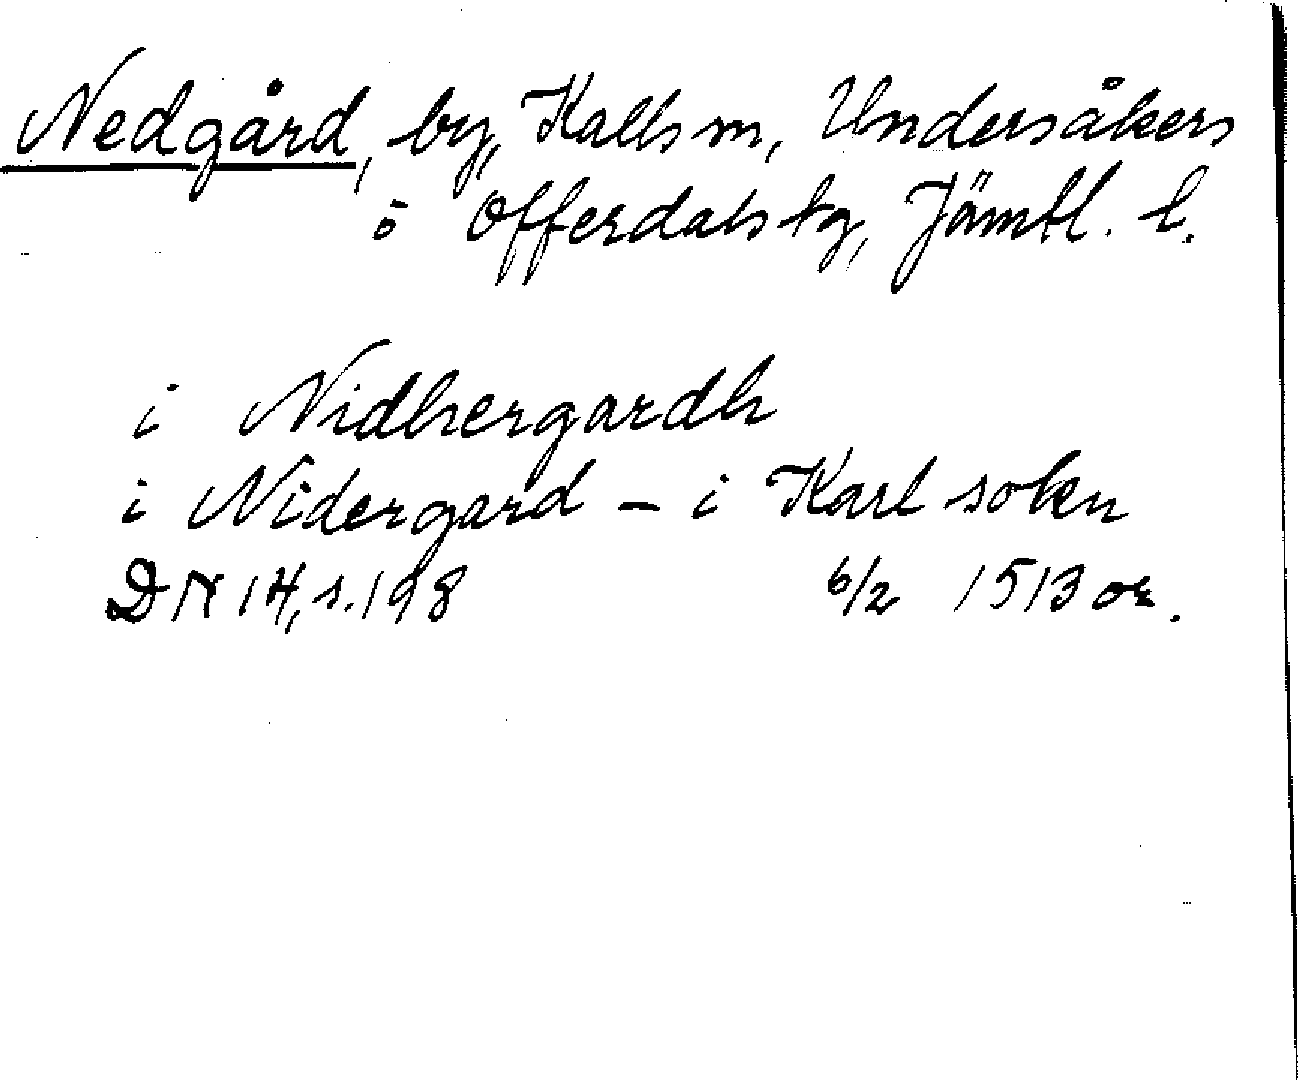 Nedgård, by, Kalls sn, Undersåkers
o Offerdals tg, Jämtl. l.
i Nidhergardh
i Nidergard – i Karl sokn
DN 14, s. 198 6/2 1513 or.